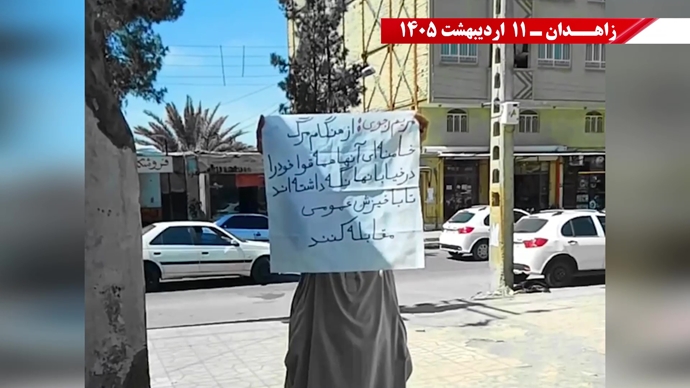 زاهـدان ـ ۱۱ اردیبهشت ۱۴۰۵
مریم رجوی: از هنگام مرگ
خامنه‌ای آنها همه قوا خود را
در خیابانها نگه داشته اند
تا با خیزش عمومی
مقابله کنند